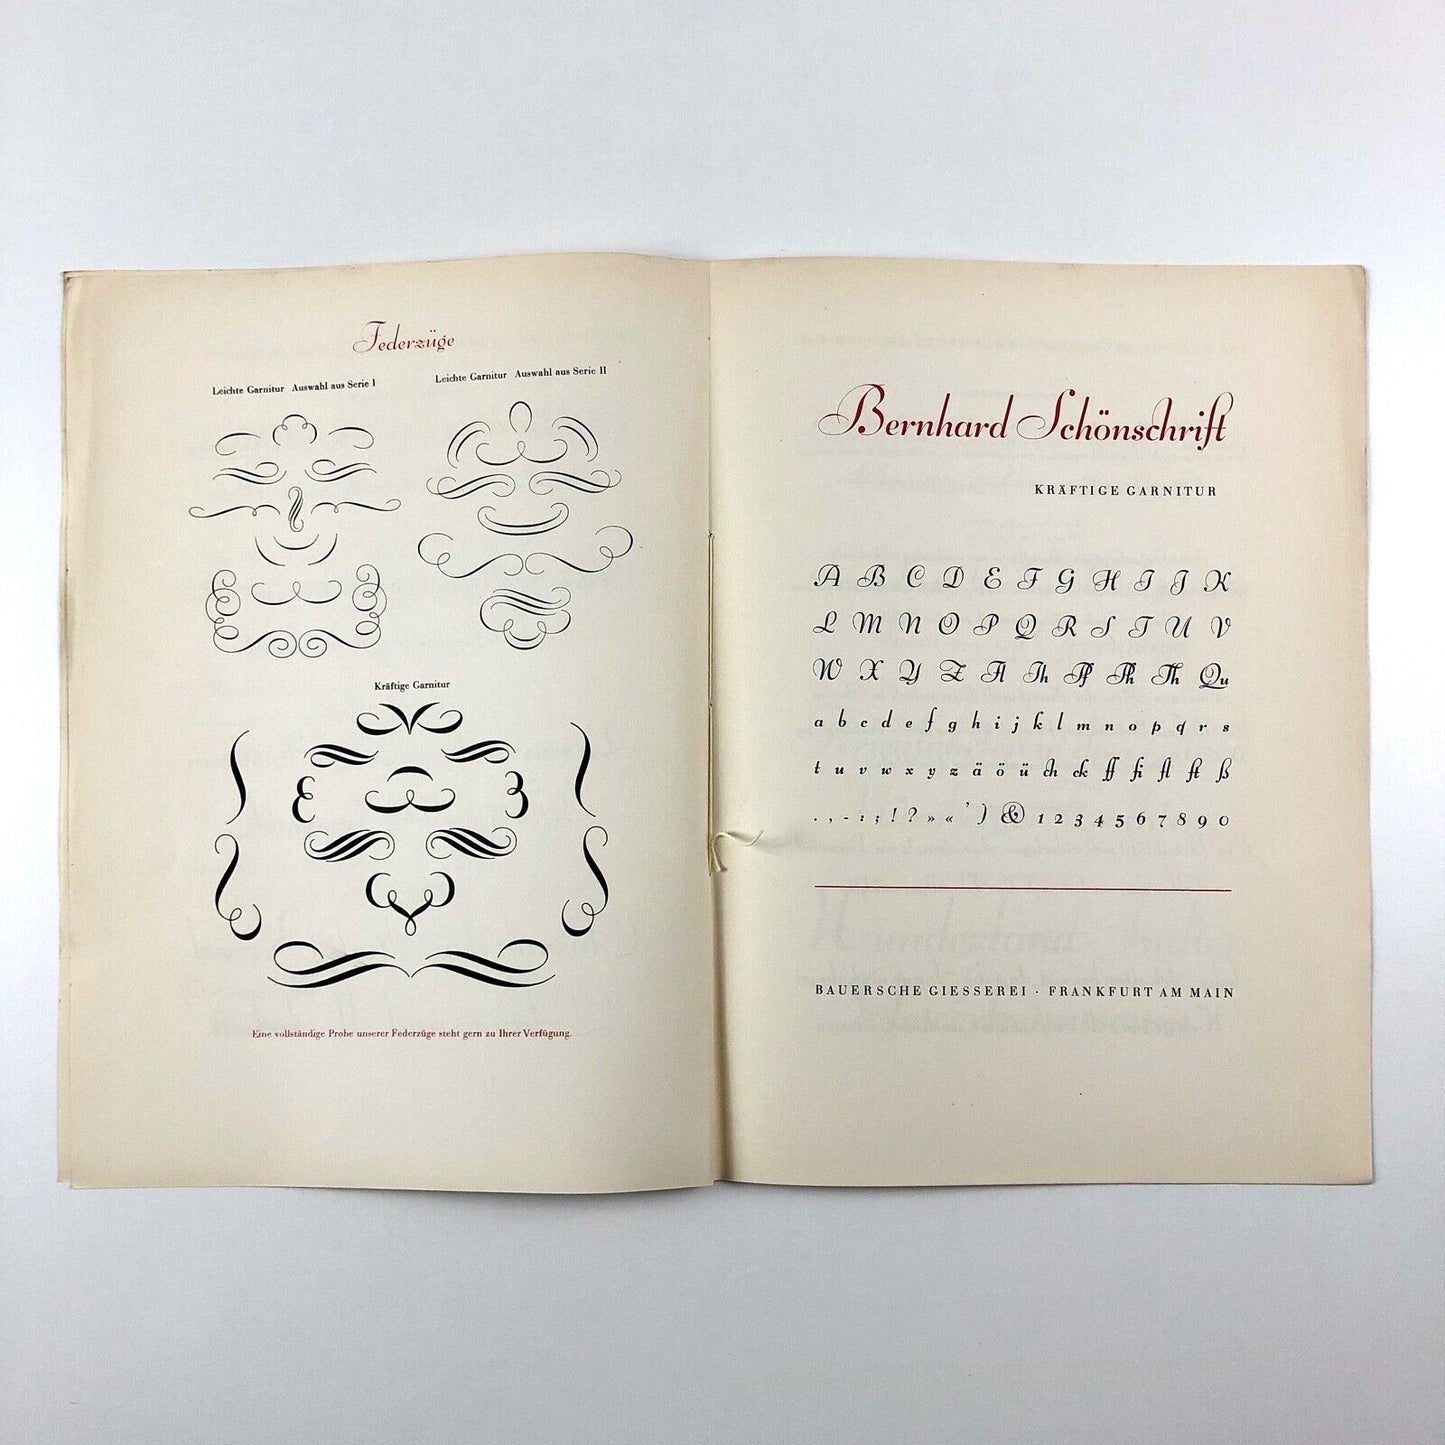 Federzüge
Leichte Garnitur Auswahl aus Serie I
Leichte Garnitur Auswahl aus Serie II
Kräftige Garnitur
Eine vollständige Probe unserer Federzüge steht gern zu Ihrer Verfügung.
Bernhard Schönschrift
KRÄFTIGE GARNITUR
A B C D E F G H I J K
L M N O P Q R S T U V
W X Y Z Fl Ih Pf Ph Th Qu
a b c d e f g h i j k l m n o p q r s
t u v w x y z ä ö ü ch ck ff fi fl ft ß
. , - : ; ! ? » « ' ) & 1 2 3 4 5 6 7 8 9 0
BAUERSCHE GIESSEREI · FRANKFURT AM MAIN